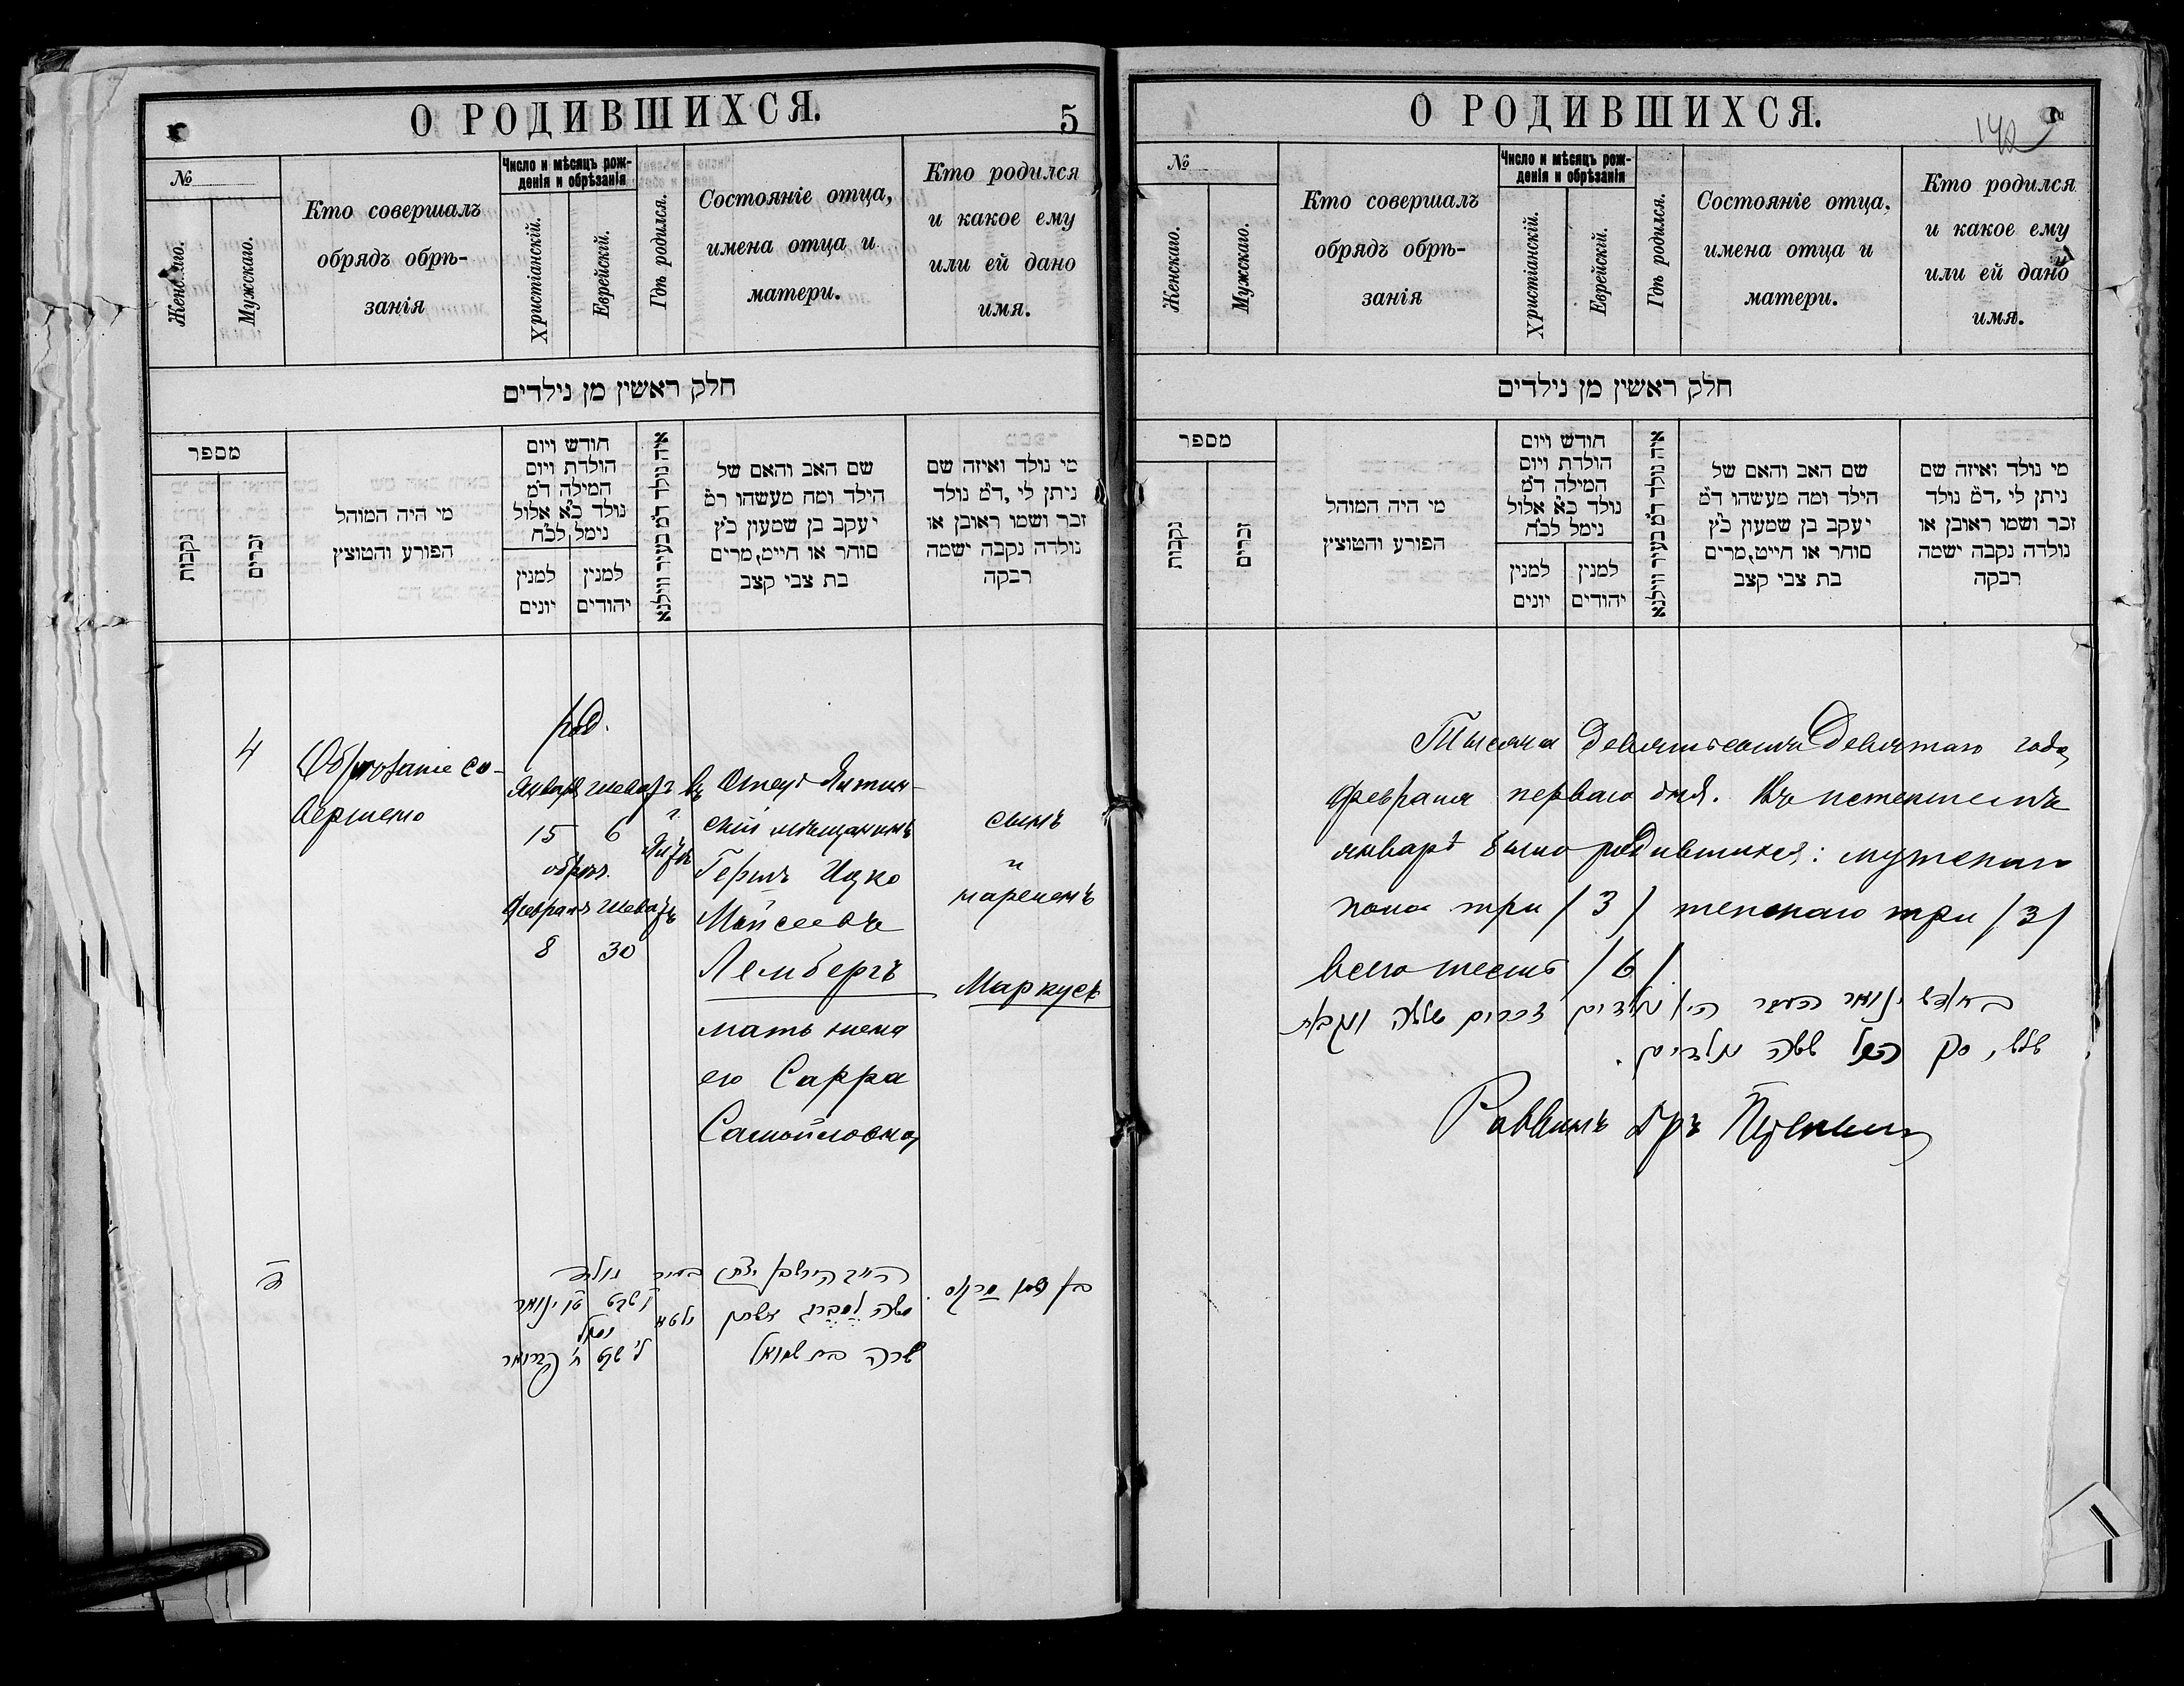 О РОДИВШИХСЯ.
5
№
Женскаго.
Мужскаго.
Кто совершалъ
обрядъ обрѣ-
занія
Число и мѣсяцъ рож-
денія и обрѣзанія
Христіанскій.
Еврейскій.
Гдѣ родился.
Состояніе отца,
имена отца и
матери.
Кто родился
и какое ему
или ей дано
имя.
חלק ראשין מן נילדים
מספר
נקבות
זכרים
מי היה המוהל
הפורע והמוצץ
חודש ויום
הולדת ויום
המילה ד״מ
נולד כ״א אלול
נימל לכ״ח
למנין
יונים
למנין
יהודים
איה נולד ד״מ בעיר ווילנא
שם האב והאם של
הילד ומה מעשהו ד״מ
יעקב בן שמעון כ״ץ
סוחר או חייט, מרים
בת צבי קצב
מי נולד ואיזה שם
ניתן לי, ד״מ נולד
זכר ושמו ראובן או
נולדה נקבה ישמה
רבקה
4
Обрѣзаніе со-
вершено
род.
Январь Шеватъ
15 6
обрѣз.
Февраль Шеватъ
8 30
въ
г.
Отецъ
скій мѣщанинъ
Гершъ Ицко
Мойсеевъ
Лембергъ
мать жена
его Сарра
Самойловна
сынъ
и
нареченъ
Маркусъ
בעיר נולד
ו׳ שבט ט״ו ינואר
נימול
ל׳ שבט ח׳ פברואר
משה לעמברג אשתו
שרה בת שמואל
בן שמו מרקוס.
О РОДИВШИХСЯ.
142
№
Женскаго.
Мужскаго.
Кто совершалъ
обрядъ обрѣ-
занія
Число и мѣсяцъ рож-
денія и обрѣзанія
Христіанскій.
Еврейскій.
Гдѣ родился.
Состояніе отца,
имена отца и
матери.
Кто родился
и какое ему
или ей дано
имя.
חלק ראשין מן נילדים
מספר
נקבות
זכרים
מי היה המוהל
הפורע והמוצץ
חודש ויום
הולדת ויום
המילה ד״מ
נולד כ״א אלול
נימל לכ״ח
למנין
יונים
למנין
יהודים
איה נולד ד״מ בעיר ווילנא
שם האב והאם של
הילד ומה מעשהו ד״מ
יעקב בן שמעון כ״ץ
סוחר או חייט, מרים
בת צבי קצב
מי נולד ואיזה שם
ניתן לי, ד״מ נולד
זכר ושמו ראובן או
נולדה נקבה ישמה
רבקה
Тысяча девятьсотъ девятаго года,
февраля перваго дня. Въ истекшемъ
январѣ было родившихся: мужскаго
пола три /3/ женскаго три /3/
всего шесть /6/
בחודש ינואר העבר היו נולדים זכרים שלשה ונקבות
שלש, סך הכל ששה נולדים.
Раввинъ Д-ръ